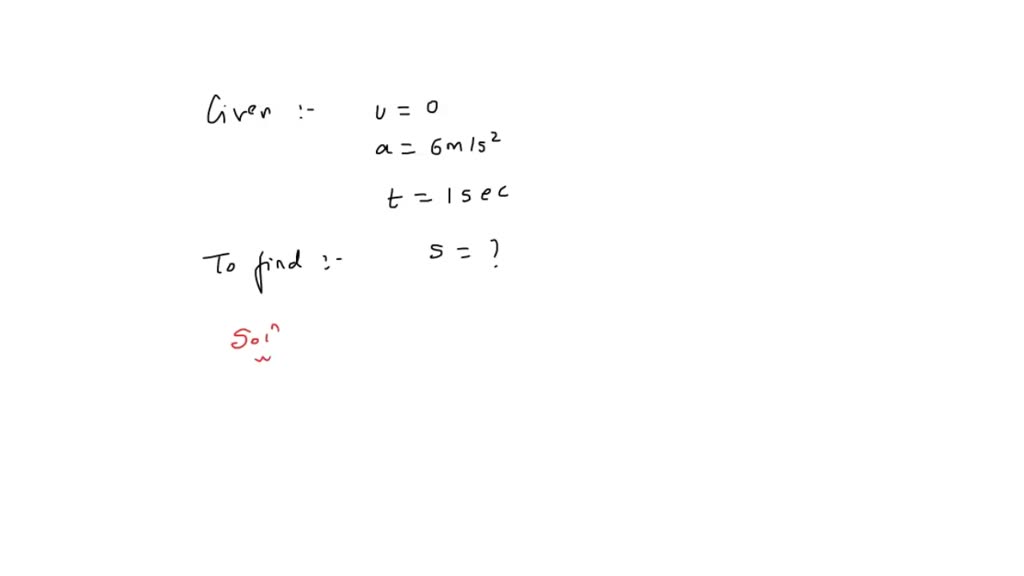 Given :- u = 0
a = 6m/s²
t = 1sec
To find :- s = ?
Solⁿ